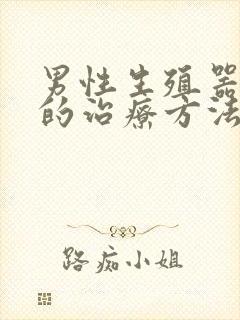 男性生殖器
的治療方法
路痴小姐